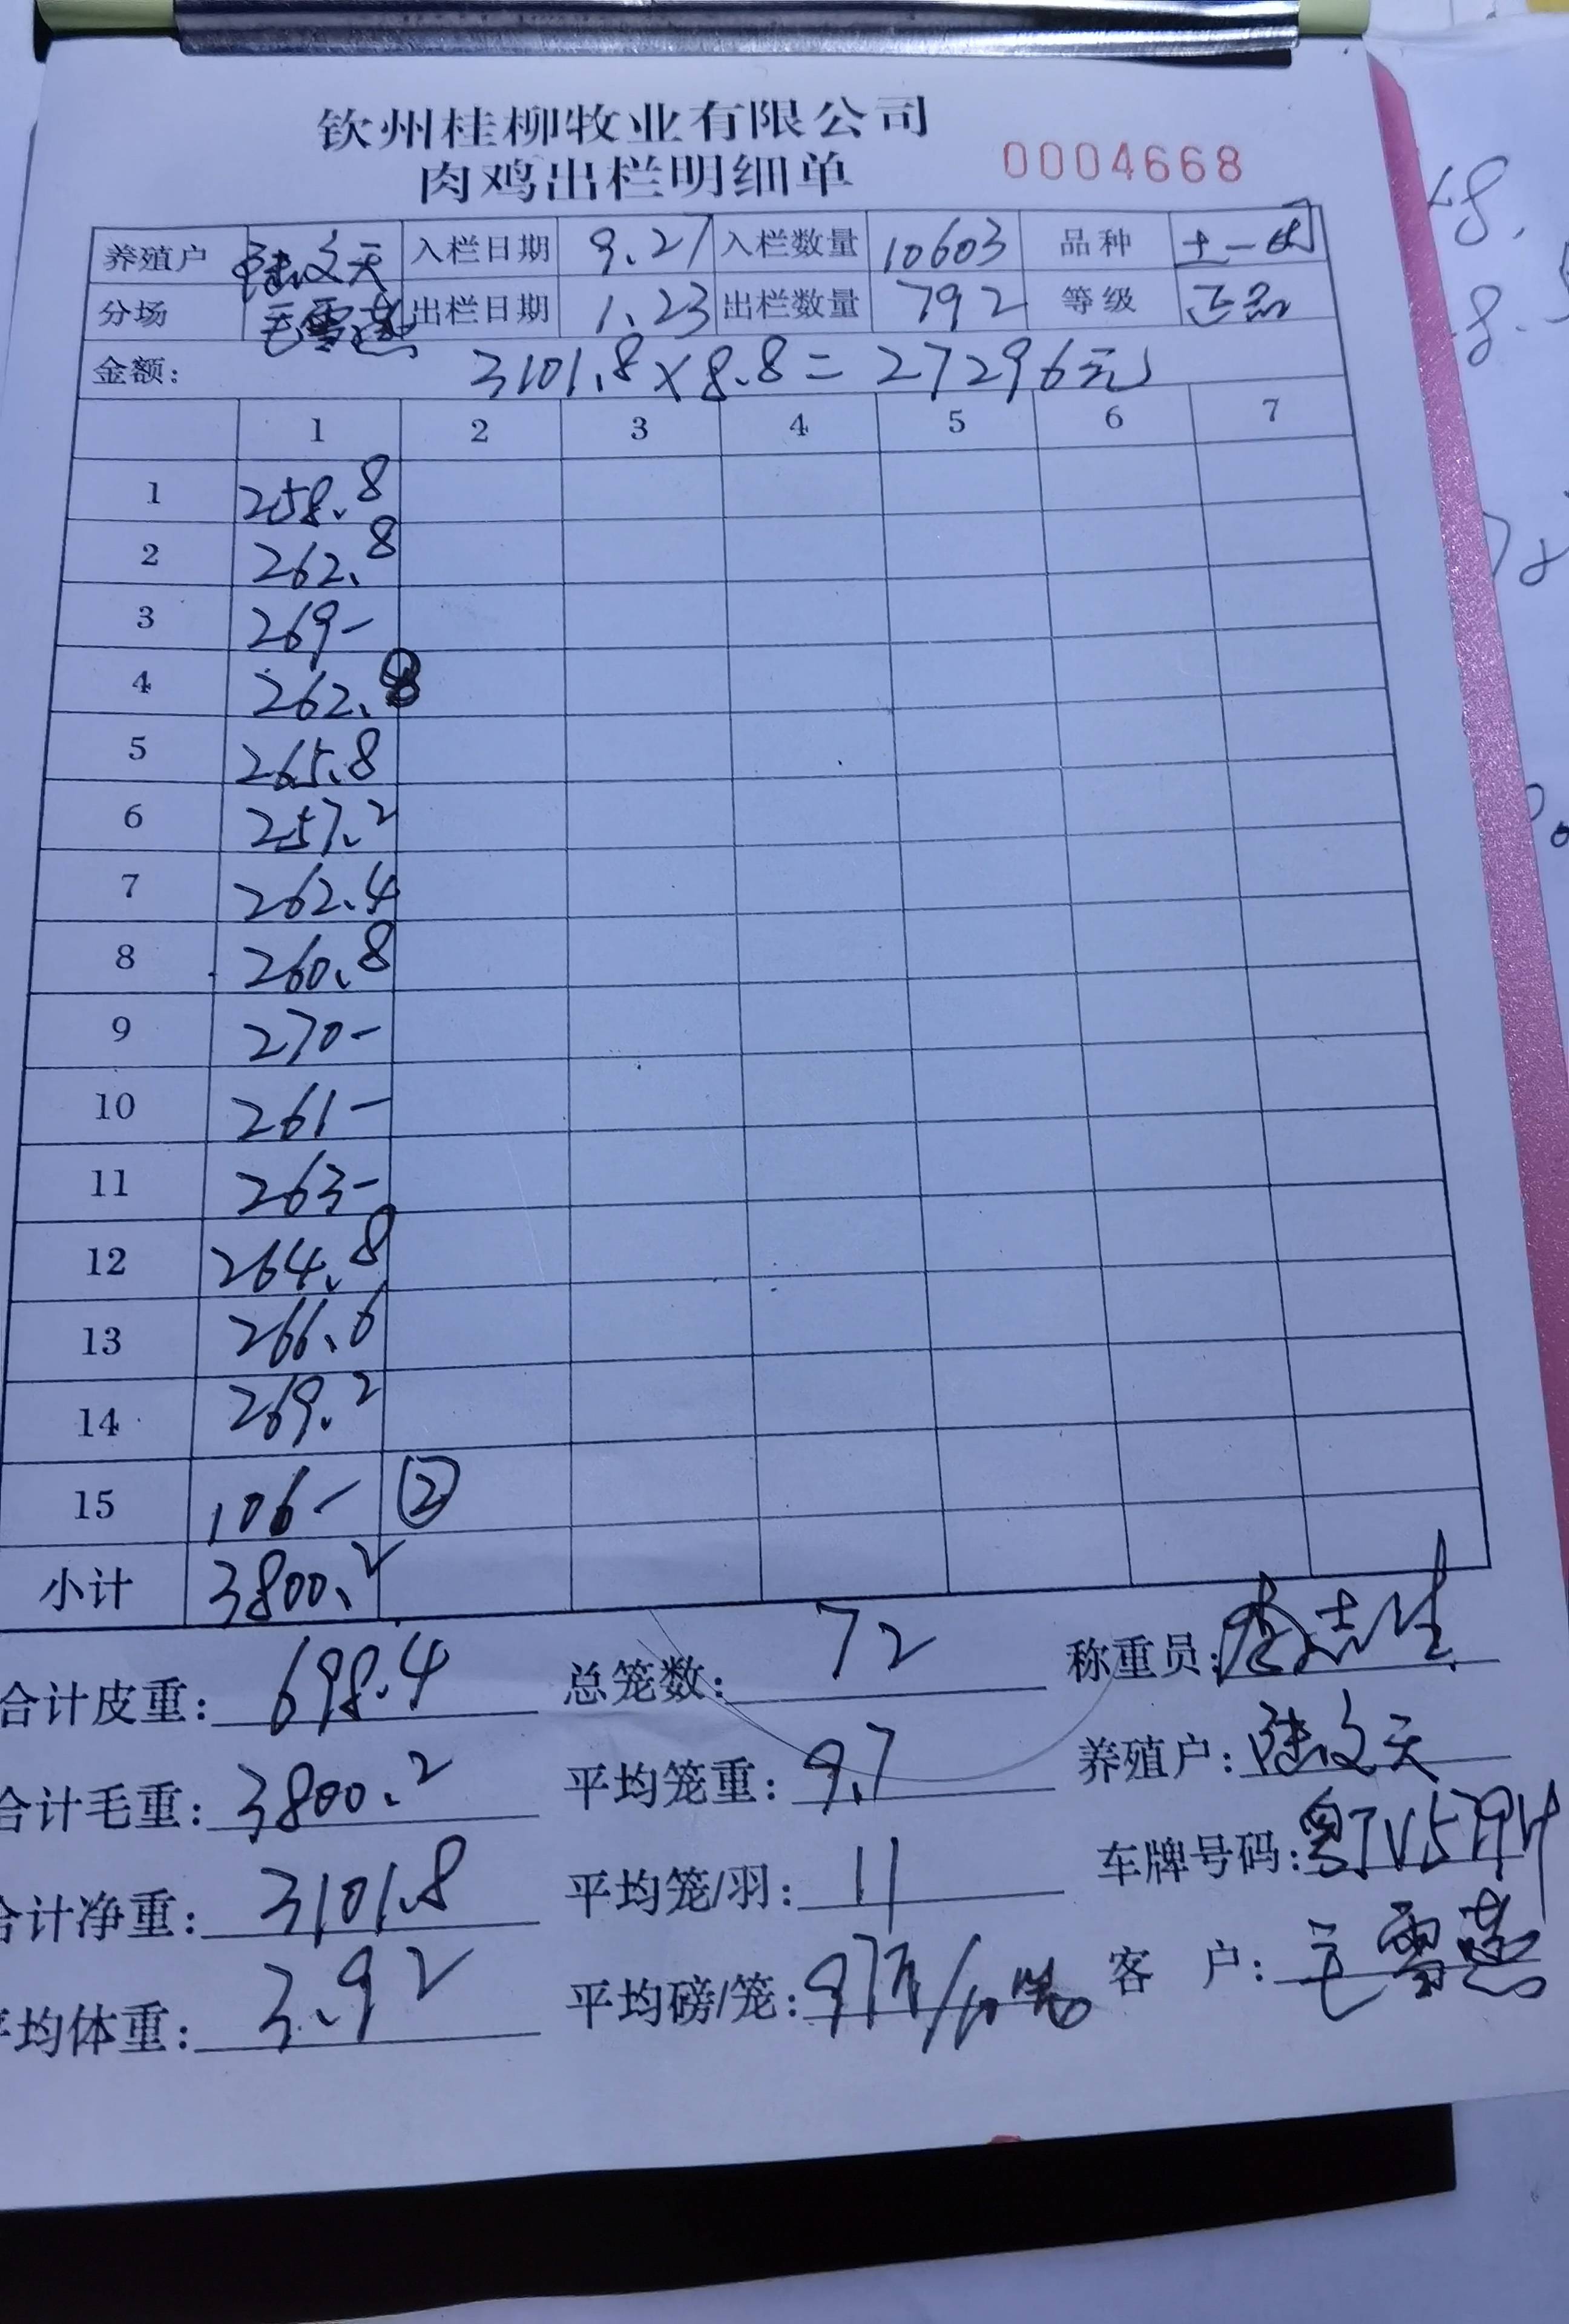 钦州桂柳牧业有限公司
肉鸡出栏明细单 0004668
养殖户 陆文天 入栏日期 9.27 入栏数量 10603 品种 土一
分场 毛雪燕 出栏日期 1.23 出栏数量 792 等级 正品
金额: 3101.8×8.8=27296元
1 2 3 4 5 6 7
1 258.8
2 262.8
3 269-
4 262.8
5 265.8
6 257.2
7 262.4
8 260.8
9 270-
10 261-
11 263-
12 264.8
13 266.6
14 269.2
15 106- ②
小计 3800.2
合计皮重: 698.4 总笼数: 72 称重员: 志生
合计毛重: 3800.2 平均笼重: 9.7 养殖户: 陆文天
合计净重: 3101.8 平均笼/羽: 11 车牌号码:
平均体重: 3.92 平均磅/笼: 客 户: 毛雪燕